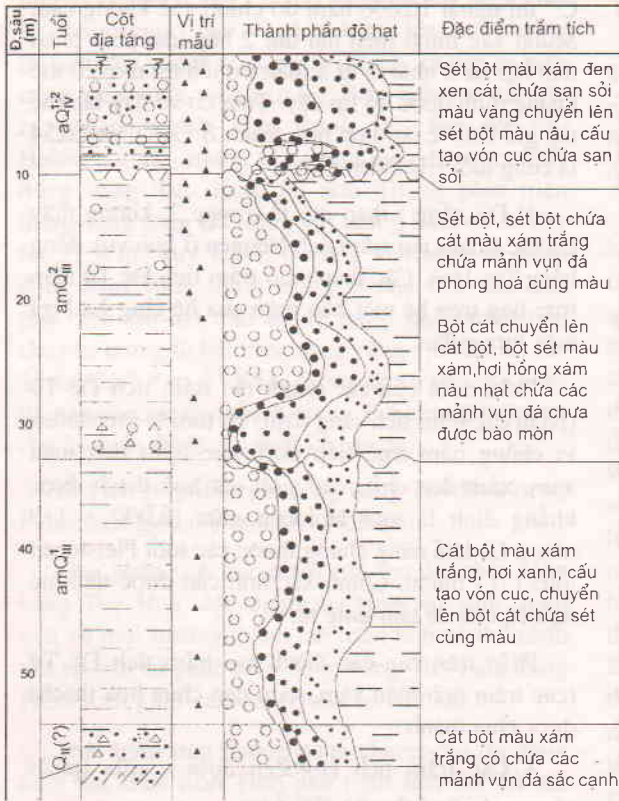 Đ.sâu
(m)
Tuổi
Cột
địa tầng
Vị trí
mẫu
Thành phần độ hạt
Đặc điểm trầm tích
aQ²IV
10
amQ²III
20
30
amQIII
40
50
QII(?)
Sét bột màu xám đen
xen cát, chứa sạn sỏi
màu vàng chuyển lên
sét bột màu nâu, cấu
tạo vón cục chứa sạn
sỏi
Sét bột, sét bột chứa
cát màu xám trắng
chứa mảnh vụn đá
phong hoá cùng màu
Bột cát chuyển lên
cát bột, bột sét màu
xám,hơi hồng xám
nâu nhạt chứa các
mảnh vụn đá chưa
được bào mòn
Cát bột màu xám
trắng, hơi xanh, cấu
tạo vón cục, chuyển
lên bột cát chứa sét
cùng màu
Cát bột màu xám
trắng có chứa các
mảnh vụn đá sắc cạnh